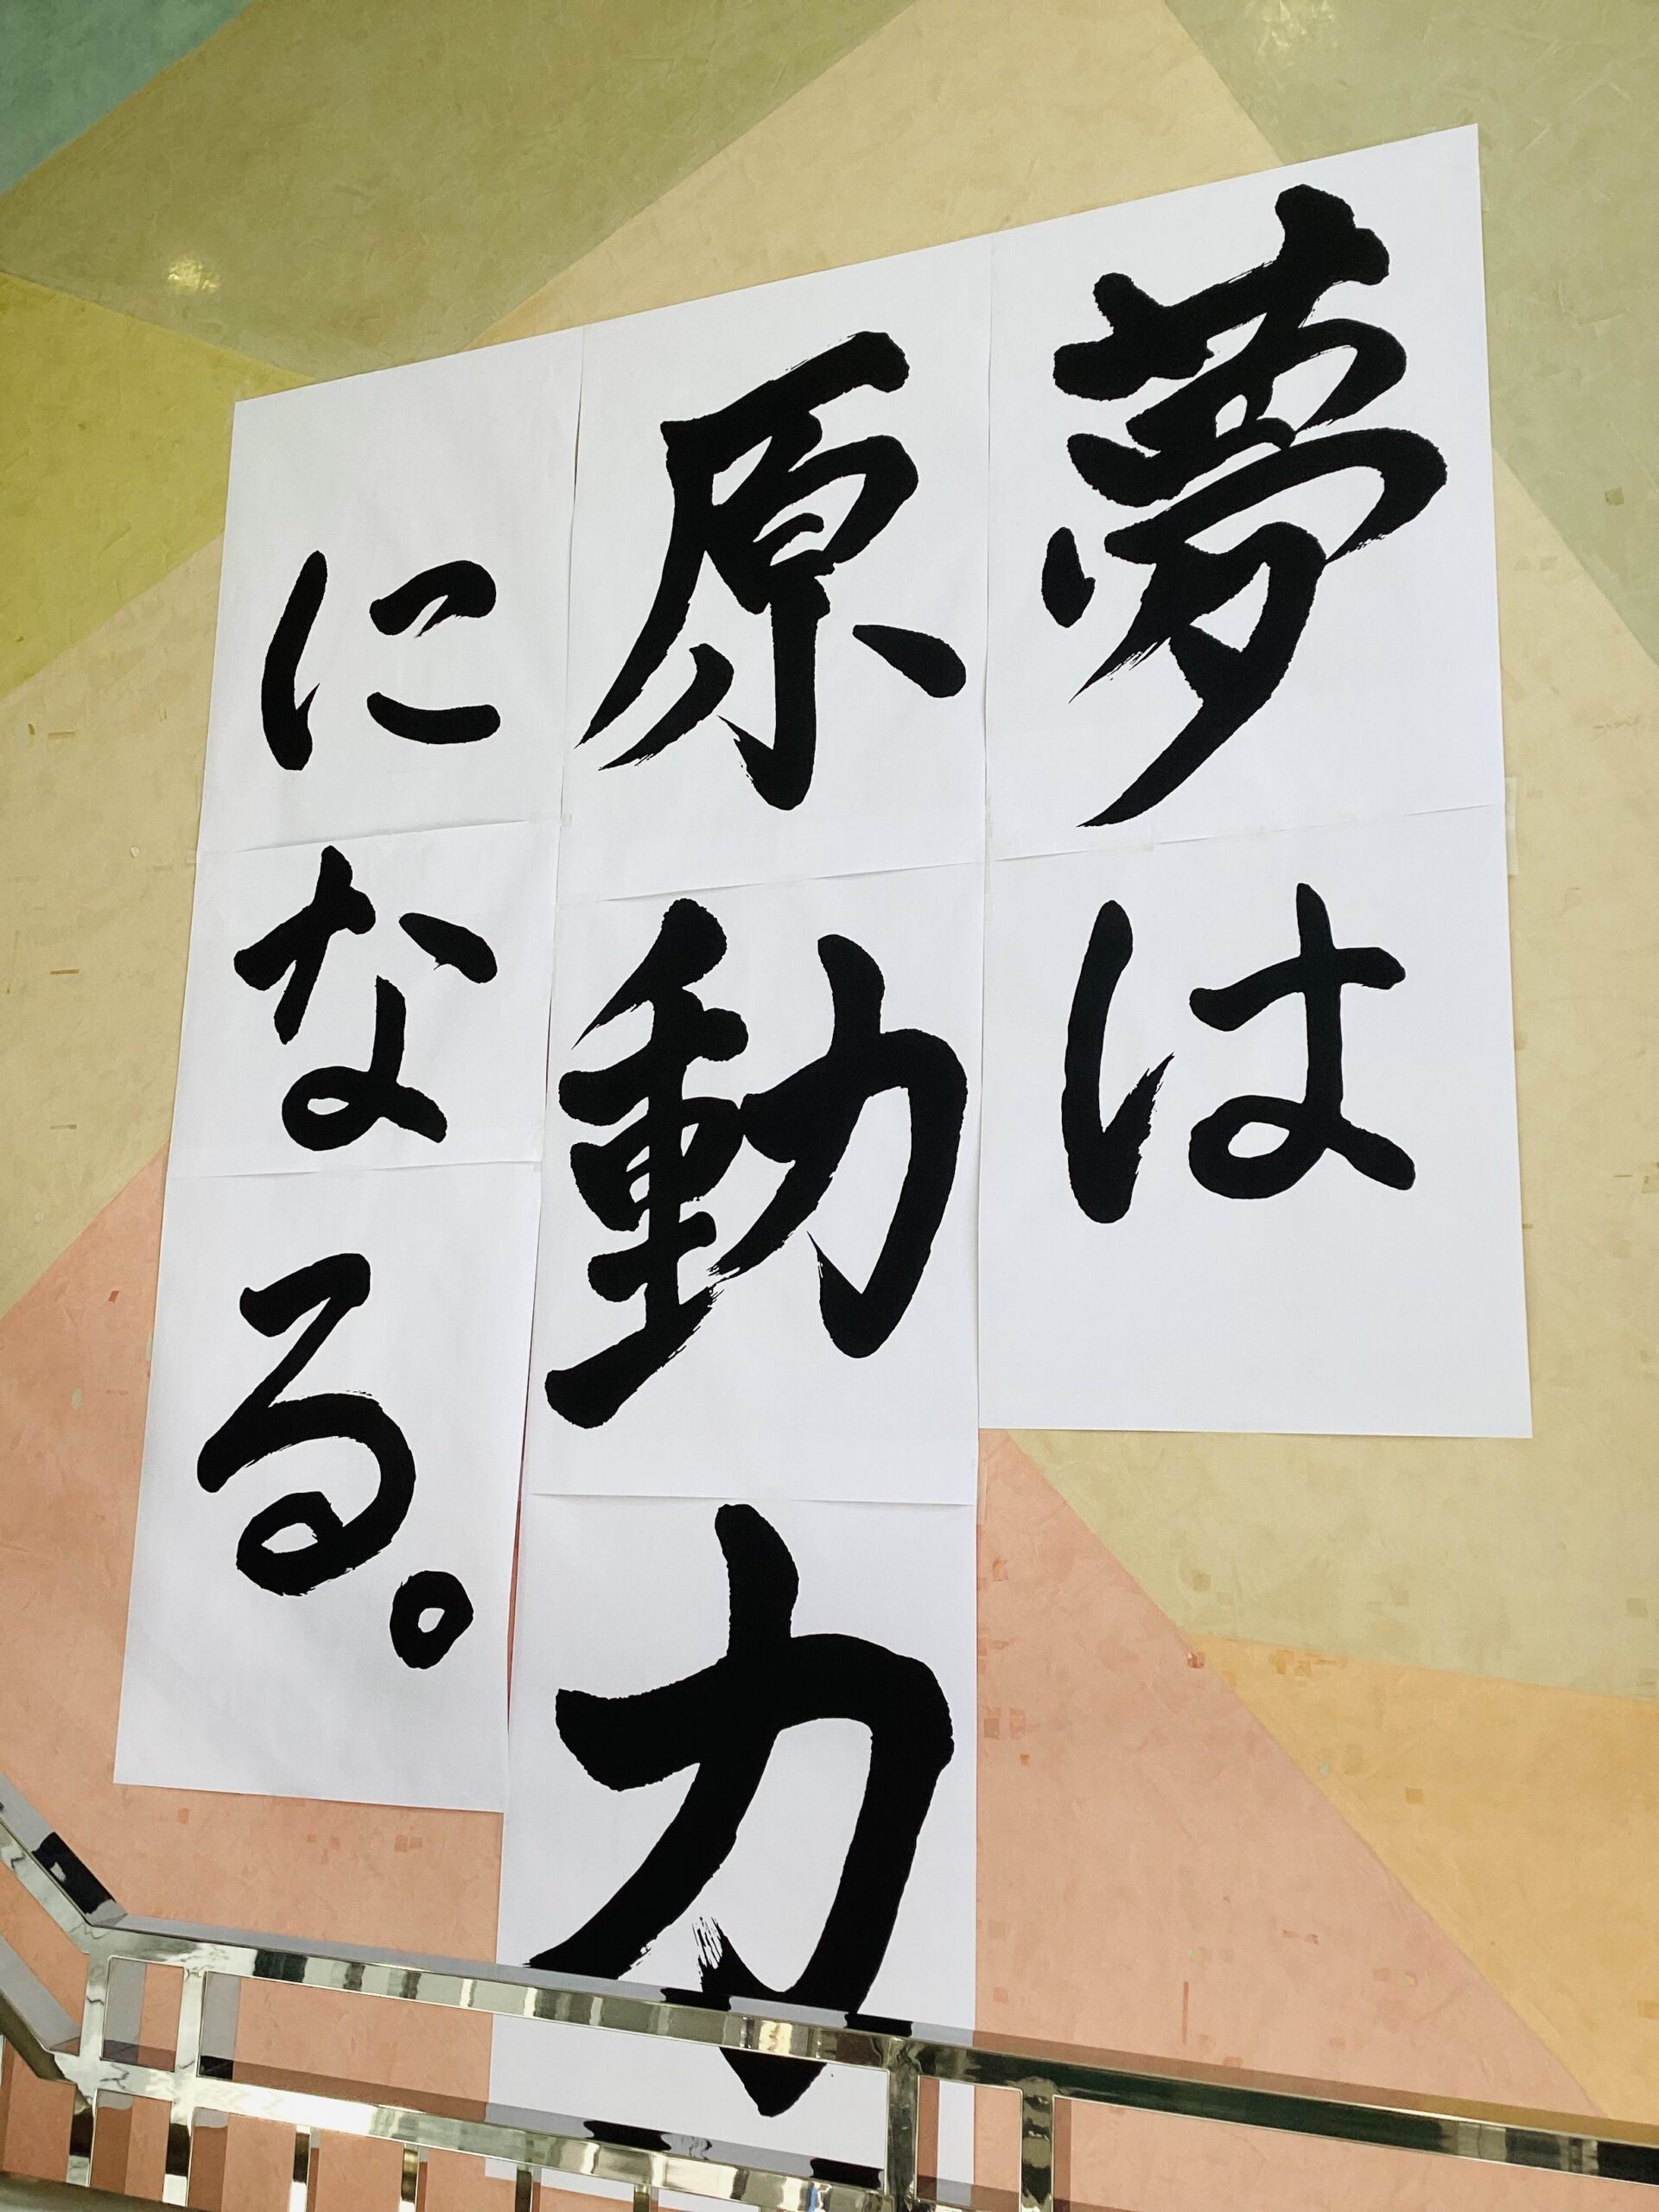 夢は
原動力
になる。